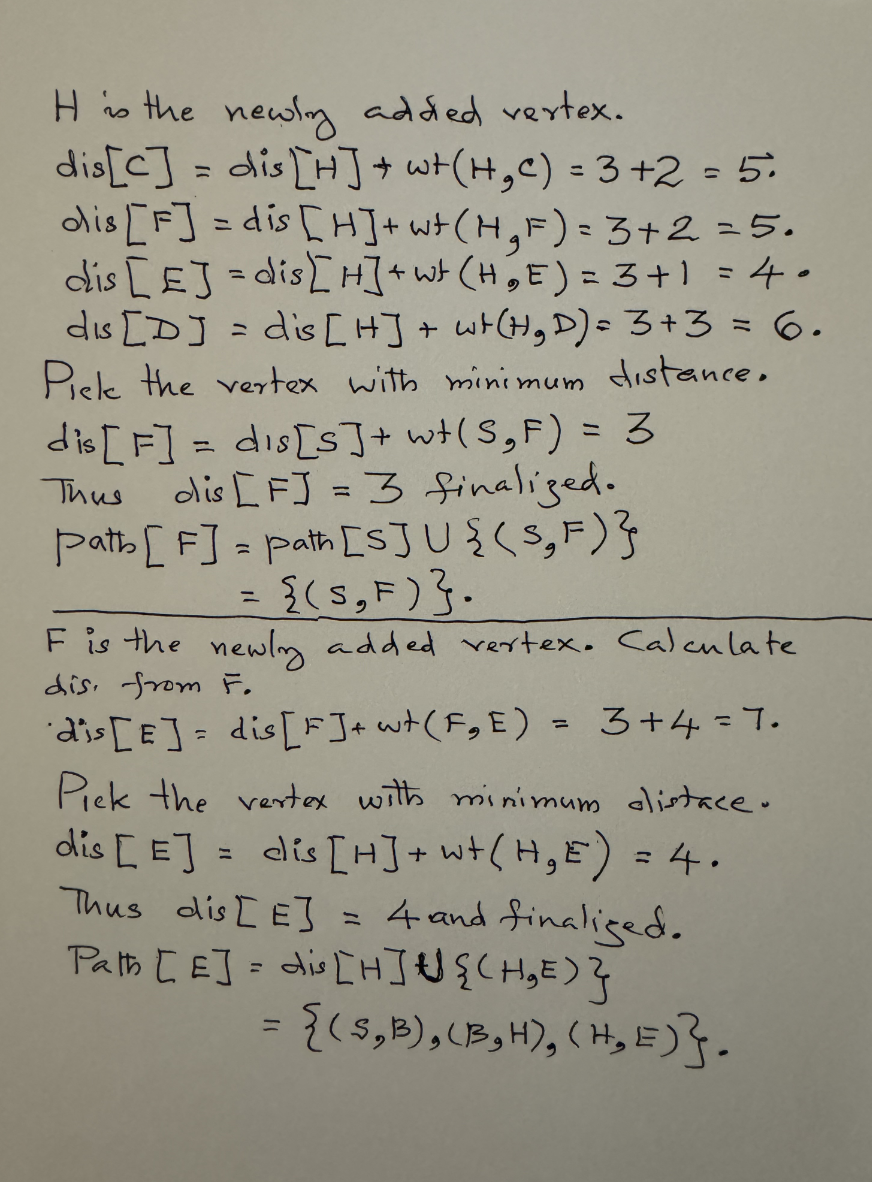 H is the newly added vertex.
dis[C] = dis[H] + wt(H,C) = 3+2 = 5.
dis[F] = dis[H] + wt(H,F) = 3+2 = 5.
dis[E] = dis[H] + wt(H,E) = 3+1 = 4.
dis[D] = dis[H] + wt(H,D) = 3+3 = 6.
Pick the vertex with minimum distance.
dis[F] = dis[S] + wt(S,F) = 3
Thus dis[F] = 3 finalized.
path[F] = path[S] U {(S,F)}
= {(S,F)}.
F is the newly added vertex. Calculate
dis. from F.
dis[E] = dis[F] + wt(F,E) = 3+4 = 7.
Pick the vertex with minimum distace.
dis[E] = dis[H] + wt(H,E) = 4.
Thus dis[E] = 4 and finalized.
Path[E] = dis[H] U {(H,E)}
= {(S,B),(B,H),(H,E)}.